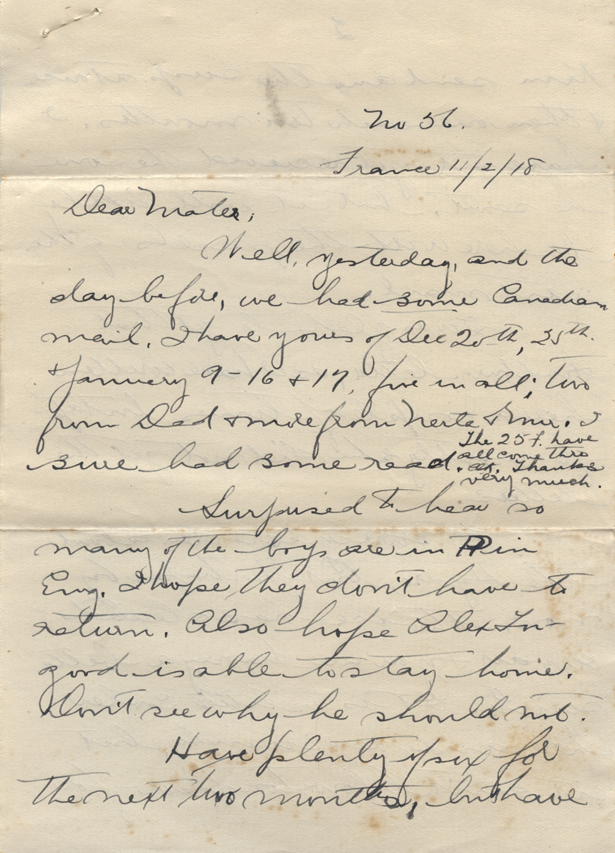 No 56.
France 11/2/18
Dear Mater,
Well, yesterday, and the
day before, we had some Canadian
mail. I have yours of Dec 20th, 25th.
& January 9-16 & 17, five in all; two
from Dad & more from Nerta & I
sure had some read.
The 25 f. have
all come thro
Thanks
very much.
Surprised to hear so
many of the boys are in in
Eng. I hope they don't have to
return. Also hope Alex In-
good is able to stay home.
Don't see why he should not.
Have plenty of sox for
the next two months, but have